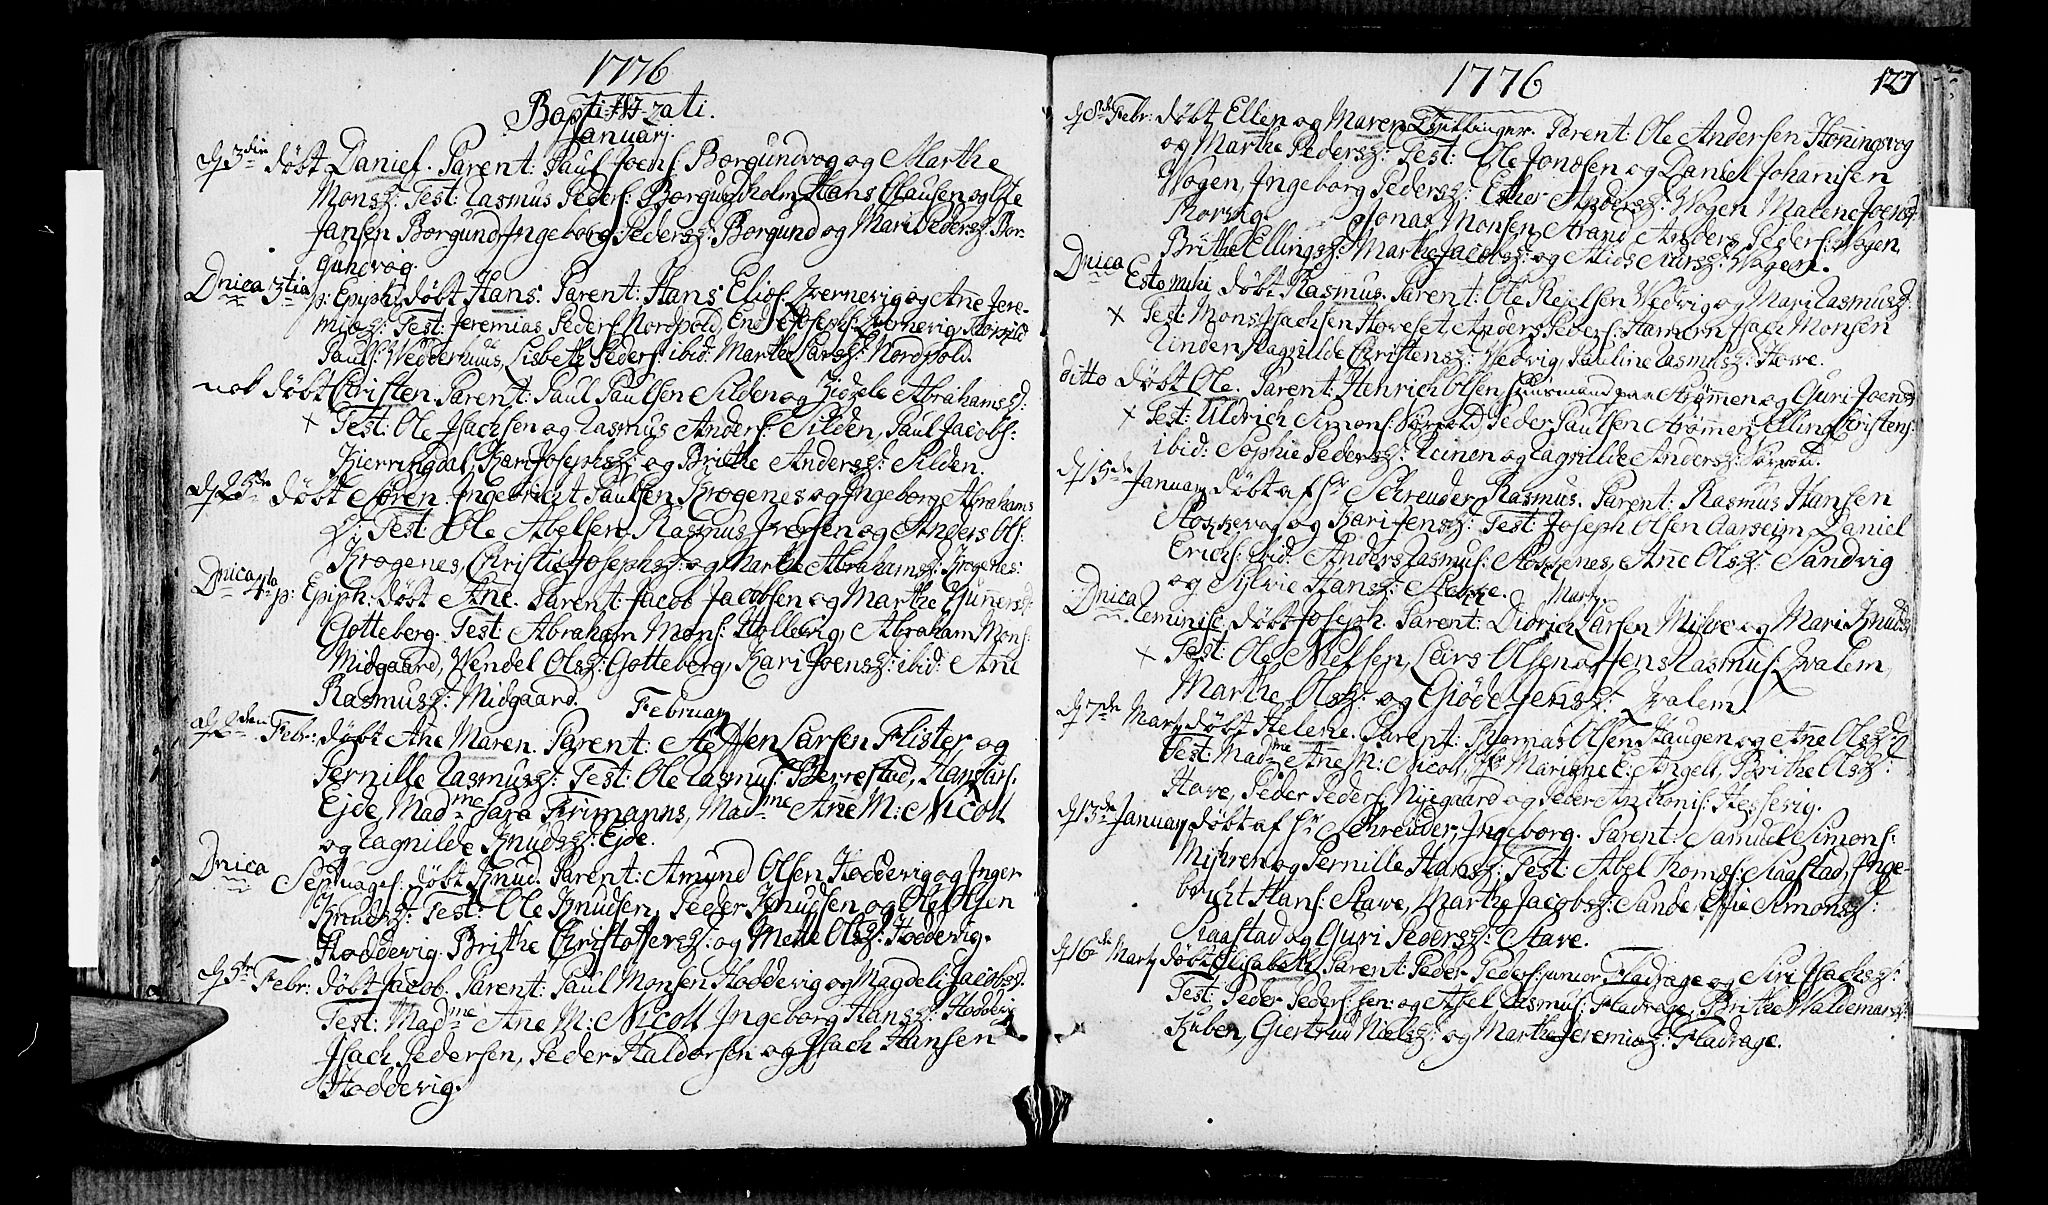 1776
Baptizati.
Januarj.
d 3die døbt Daniel. Parent: Paul Joens: Borgundvog og Marthe
Monsd: Test: Rasmus Peders: Borgundholm, Hans Clausen og
Jansen Borgund, Ingeborg Pedersd: Borgund og Mari Pedersd: Bor-
gundvog.
Dnica 3tia p: Epiph: døbt Hans. Parent: Hans Elios: og Anne Jere-
miæd: Test: Jeremias Peders: Nordpold, Endre Josephs:
Pauls: Vedderhuus, Lisbeth Peders: ibid: Marthe Larsd: Nordpold.
nok døbt Christen. Parent: Paul Paulsen Silden og Zidzele Abrahamsd:
+ Test: Ole Isachsen og Rasmus Anders: Silden, Paul Jacobs:
Kierringdal, Kari Josephsd: og Brithe Andersd: Silden.
d 25de døbt Søren. Ingebricht Paulsen Krogenes og Ingeborg Abrahams
D: Test: Ole Abelsen, Rasmus Iversen og Anders Ols:
Krogenes, Christie Josephsd: og Marthe Abrahamsd: Krogenes:
Dnica 4ta p: Epiph: døbt Ane. Parent: Jacob Jacobsen og Marthe
Gotteberg. Test: Abraham Mons: Hellevig, Abraham Mons:
Midgaard, Wendel Olsd: Gotteberg, Kari Joensd: ibid: Anne
Rasmusd: Midgaard.
Februarj
d 2den Febr: døbt Ane Maren. Parent: Steffen Larsen Flister og
Pernille Rasmusd: Test: Ole Rasmus: Berrestad, Hans Lars:
Ejde, Madme Sara Frimanns, Madme Anne M: Nicoll
og Ragnilde Knudsd: Ejde.
Dnica Septuages: døbt Knud. Parent: Amund Olsen Hoddevig og Inger
Knudsd: Test: Ole Knudsen, Peder Knudsen og Ole Olsen
Hoddevig. Brithe Christoffersd: og Mette Olsd: Hoddevig.
d 5te Febr: døbt Jacob. Parent: Paul Monsen Hoddevig og Magdeli Jacobsd.
Test: Madme Anne M: Nicoll Ingeborg Hansd: Hoddevig
Isach Pedersen, Peder Haldorsen og Isach Hansen
Hoddevig.
1776
127
d 8de Febr: døbt Ellen og Maren Tvillinger. Parent: Ole Andersen Honingsvog
og Marthe Pedersd: Test: Ole Jonosen og Daniel Johannsen
Wogen, Ingeborg Pedersd: Esther Andersd: Wogen Malene Joensd:
Morvig. Jonas Monsen Strand Anders Peders: Wogen
Brithe Ellingsd: Marthe Jacobsd: og Alids Wogen.
Dnica Esto mihi døbt Rasmus. Parent: Ole Wedvig og Mari Rasmusd:
+ Test: Mons Isachsen Hoveset, Anders Peders: Hamern Isach Monsen
Linden, Ragnilde Christensd: Wedvig, Pauline Rasmusd: Hove.
ditto døbt Ole. Parent: Henrich Olsen Huusmand paa Strømen og Guri Joensd
+ Test: Uldrich Simons: Sørpold, Peder Paulsen Strømen, Elling Christens:
ibid: Sophie Pedersd: Leinen og Ragnilde Andersd: Sørpold.
d 15de Januarj døbt af Hr Schreuder Rasmus. Parent: Rasmus Hansen
Stokkevog og Kari Jensd: Test: Joseph Olsen Aarseim Daniel
Erichs: ibid: Anders Rasmus: Stokkenes, Anne Olsd: Sandvig
og Sylvie Hansd: Stokke.
Martj
Dnica Reminisc: døbt Joseph. Parent: Didrich Larsen og Mari Knudsd
+ Test: Ole Nielsen, Lars Olsen Jens Rasmus:
Marthe Olsd: og Giøde Jensd:
d 7de Martj døbt Helene. Parent: Thomas Olsen Haugen og Ane Olsd:
Test: Madme Anne M: Nicoll, Marianne C: Angell, Brithe Olsd:
Hove, Peder Peders: Nygaard og Peder Anthonis: Hessevig.
d 13de Januarj døbt af Hr Schreuder, Ingeborg. Parent: Samuel Simons:
og Pernille Hansd: Test: Abel Thoms: Raastad, Inge-
bricht Hans: Stave, Marthe Jacobsd: Sande, Simonsd:
Raastad og Guri Pedersd: Stave.
d 16de Martj døbt Elisabeth. Parent: Peder Peders: junior Fladrage og Siri Isachsd:
Test: Peder Peders: sen: og Axel Rasmus: Fladrage, Brithe Waldemarsd:
Kuben, Giertrud Nielsd: og Marthe Jeremiæd: Fladrage.